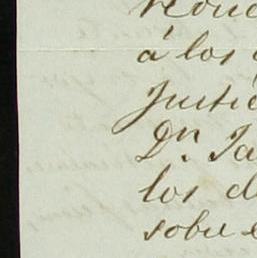 á los
Justic
Dn. Ja
los d
sobre